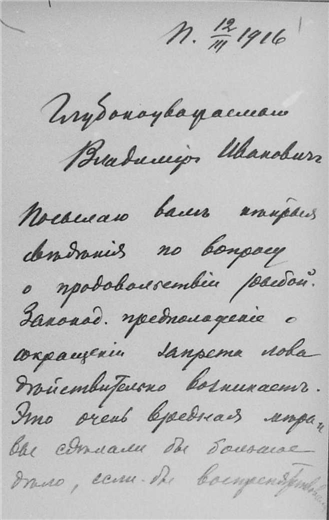 П. 12/III 1916
Глубокоуважаемый
Владиміръ Ивановичъ
Посылаю вамъ нѣкоторыя
свѣдѣнія по вопросу
о продовольствіи рыбой.
Законод. предположеніе о
сокращеніи запрета лова
дѣйствительно возникаетъ.
Это очень вредная мѣра и
вы сдѣлали бы большое
дѣло, если-бы